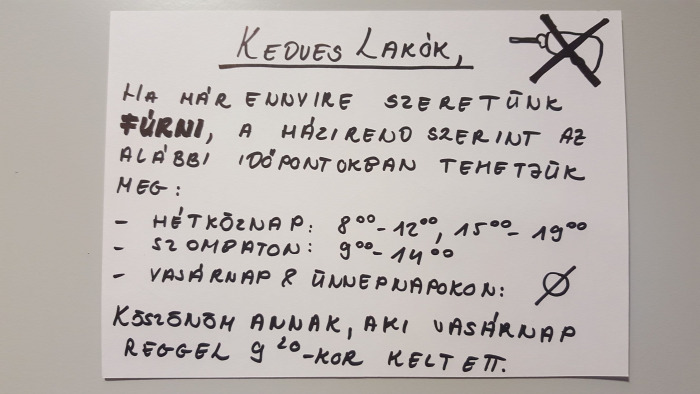 KEDVES LAKÓK,
HA MÁR ENNYIRE SZERETÜNK
FÚRNI, A HÁZIREND SZERINT AZ
ALÁBBI IDŐPONTOKBAN TEHETJÜK
MEG:
- HÉTKÖZNAP: 8⁰⁰-12⁰⁰, 15⁰⁰-19⁰⁰
- SZOMBATON: 9⁰⁰-14⁰⁰
- VASÁRNAP & ÜNNEPNAPOKON: Ø
KÖSZÖNÖM ANNAK, AKI VASÁRNAP
REGGEL 9²⁰-KOR KELTETT.